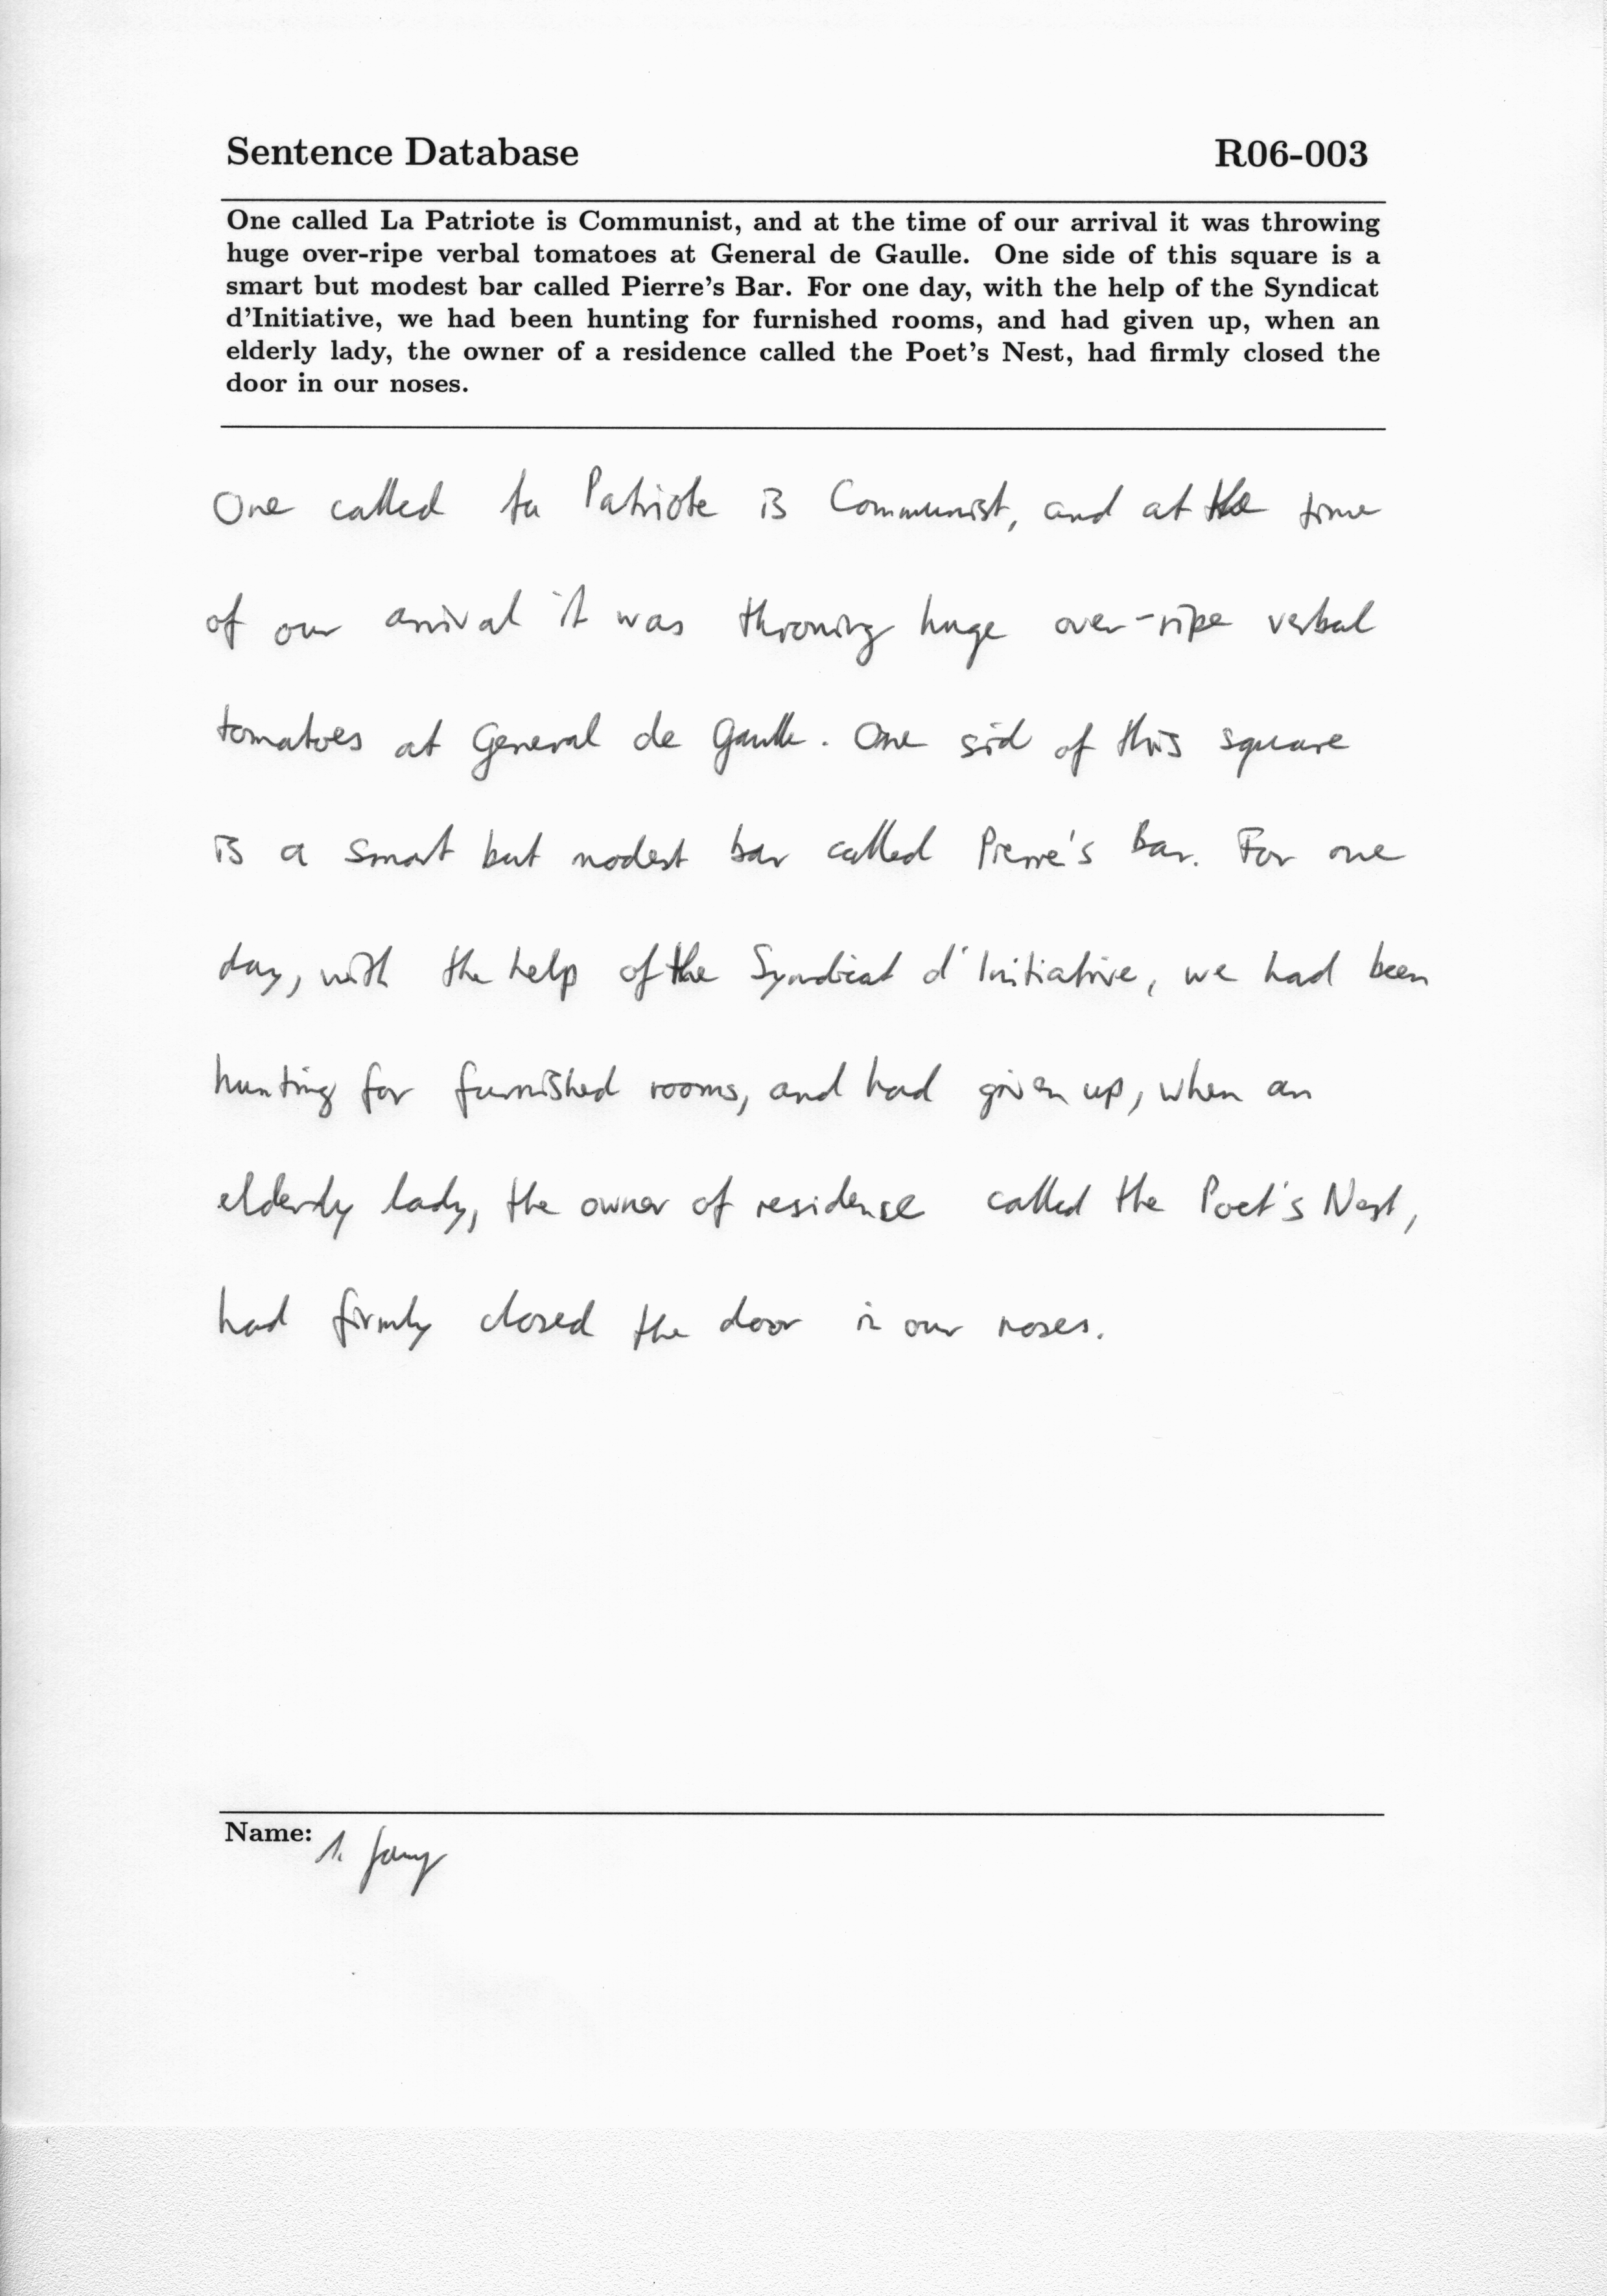 Sentence Database R06-003
One called La Patriote is Communist, and at the time of our arrival it was throwing
huge over-ripe verbal tomatoes at General de Gaulle. One side of this square is a
smart but modest bar called Pierre's Bar. For one day, with the help of the Syndicat
d'Initiative, we had been hunting for furnished rooms, and had given up, when an
elderly lady, the owner of a residence called the Poet's Nest, had firmly closed the
door in our noses.
One called La Patriote is Communist, and at the time
of our arrival it was throwing huge over-ripe verbal
tomatoes at General de Gaulle. One sid of this square
is a smart but modest bar called Pierre's Bar. For one
day, with the help of the Syndicat d'Initiative, we had been
hunting for furnished rooms, and had given up, when an
elderly lady, the owner of residense called the Poet's Nest,
had firmly closed the door in our noses.
Name: